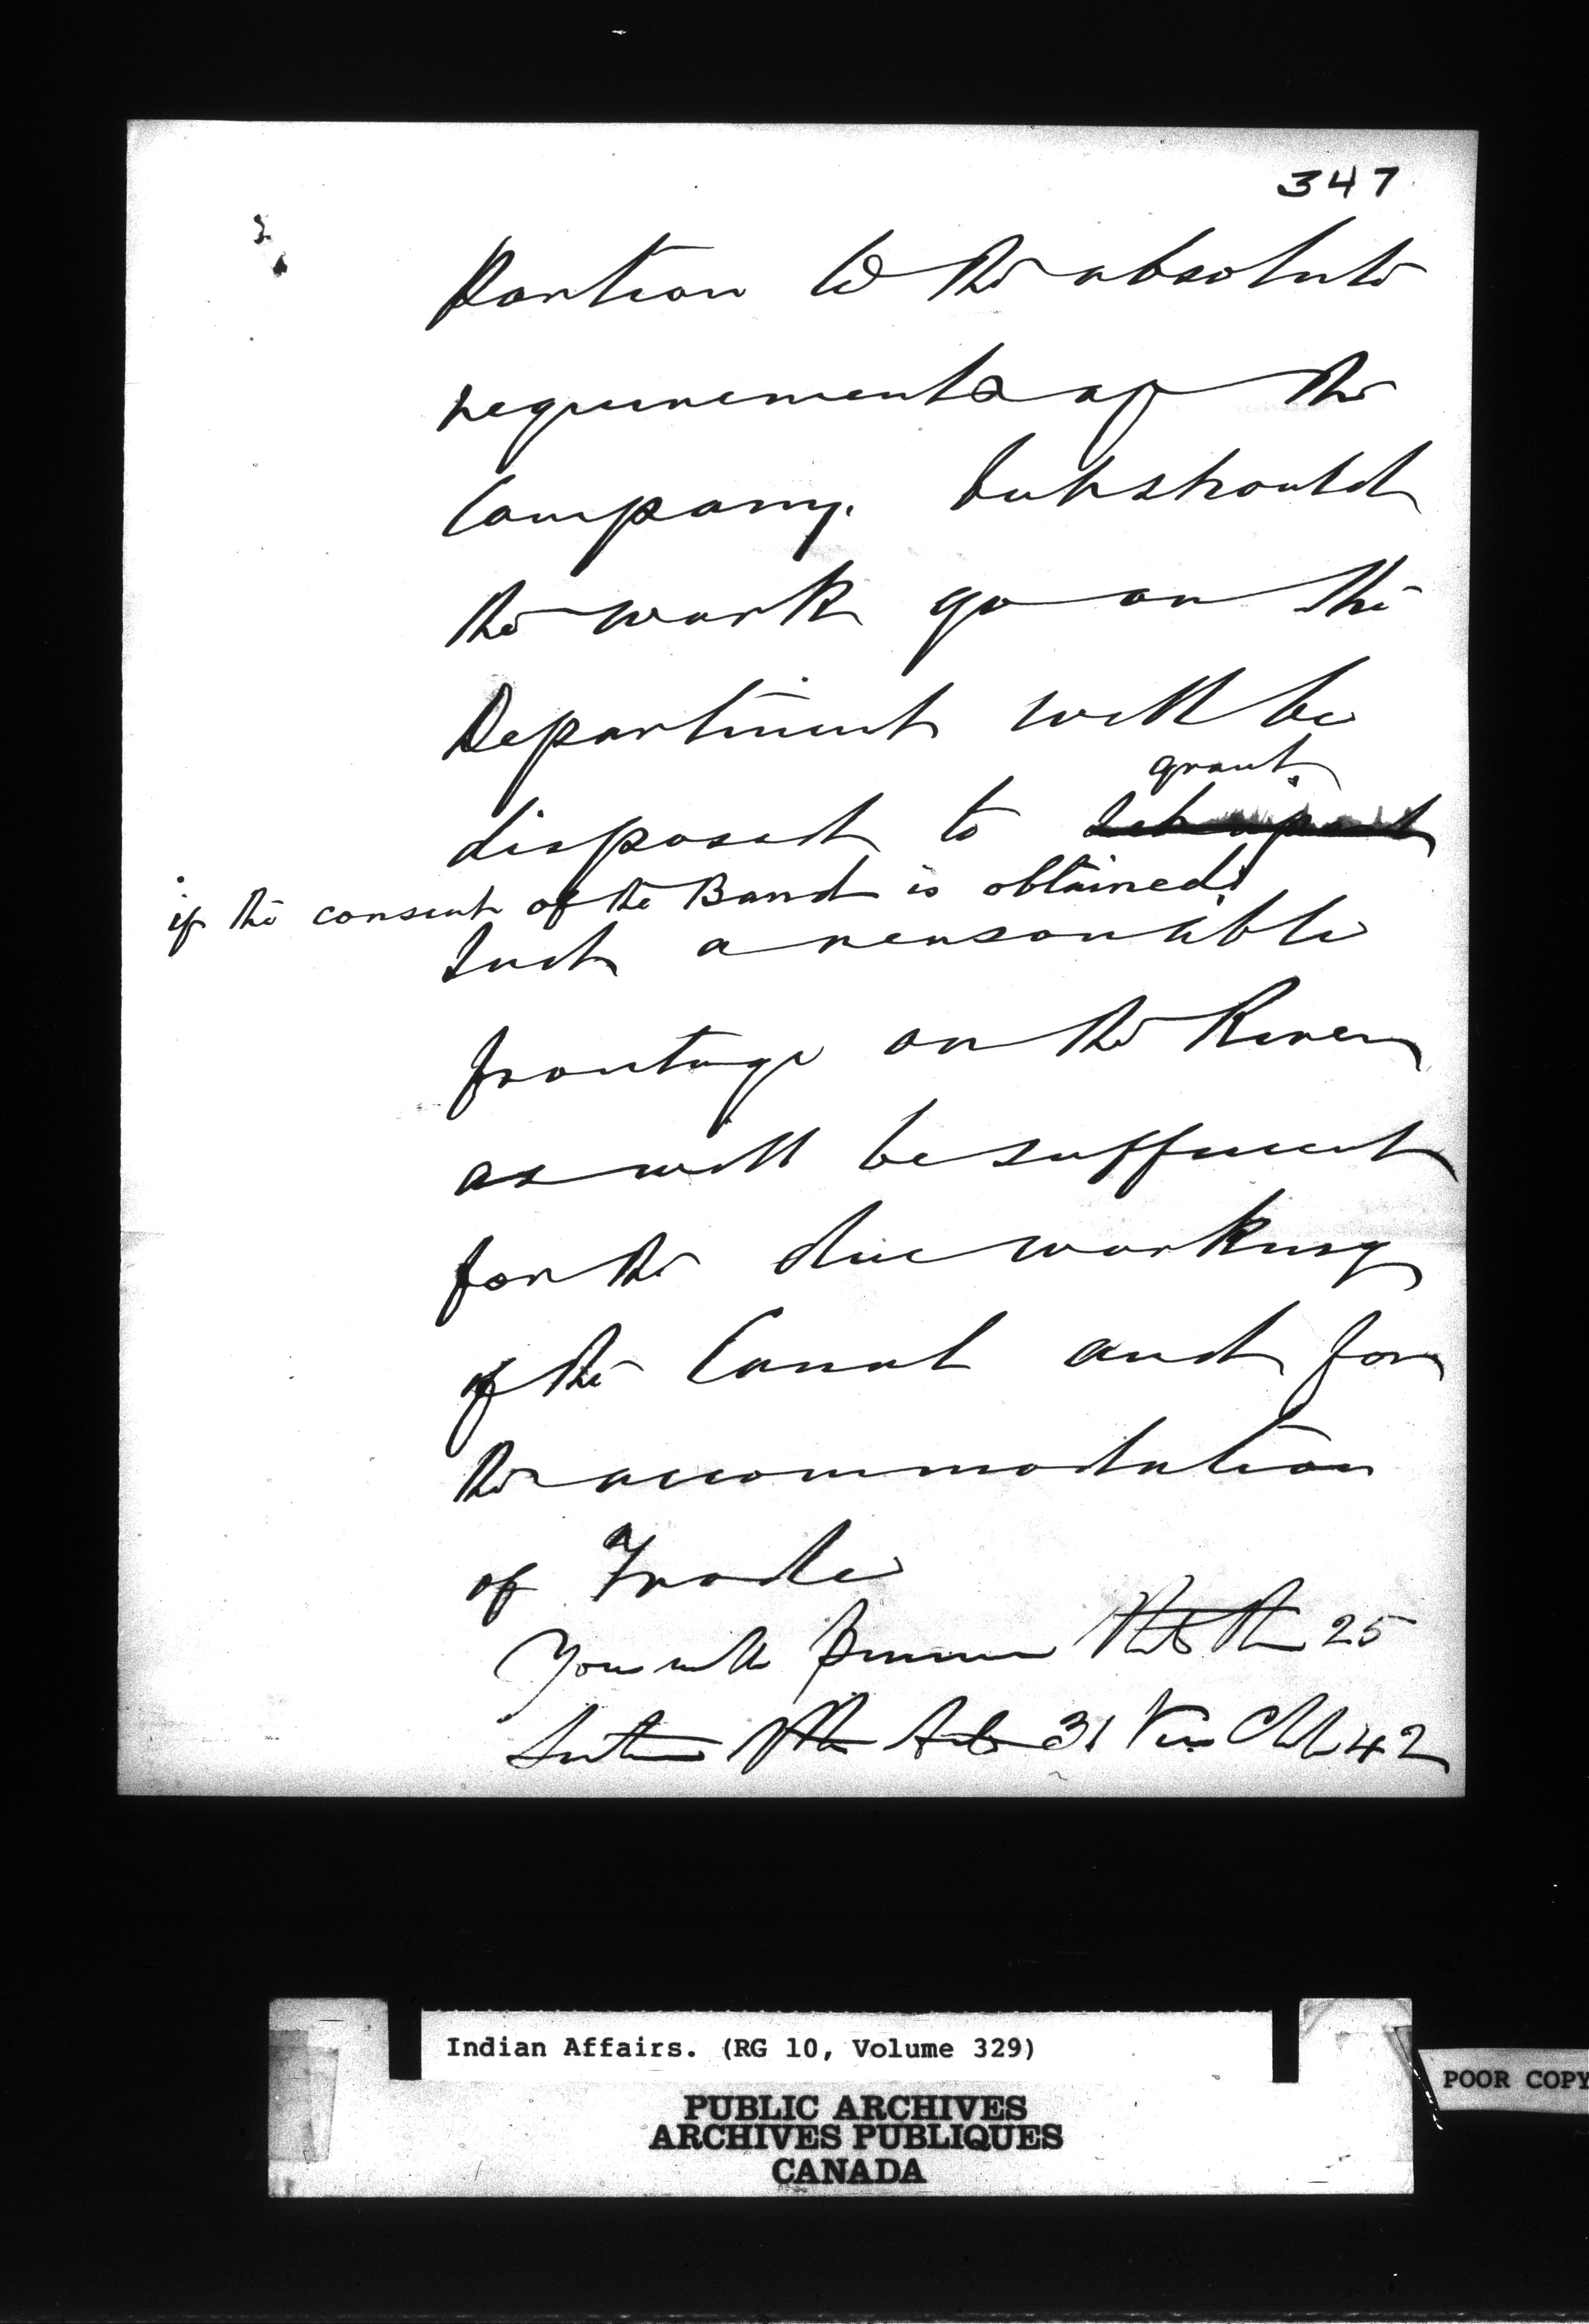 347
portion to the absolute
requirements of the
Company. but should
the work go on the
Department will be
grant
disposed to set apart
if the consent of the Band is obtained
such a reasonable
frontage on the River
as will be sufficient
for the due working
of the Canal and for
the accommodation
of Trade
You will 25
31 Vic 42
Indian Affairs. (RG 10, Volume 329)
POOR COPY
PUBLIC ARCHIVES
ARCHIVES PUBLIQUES
CANADA